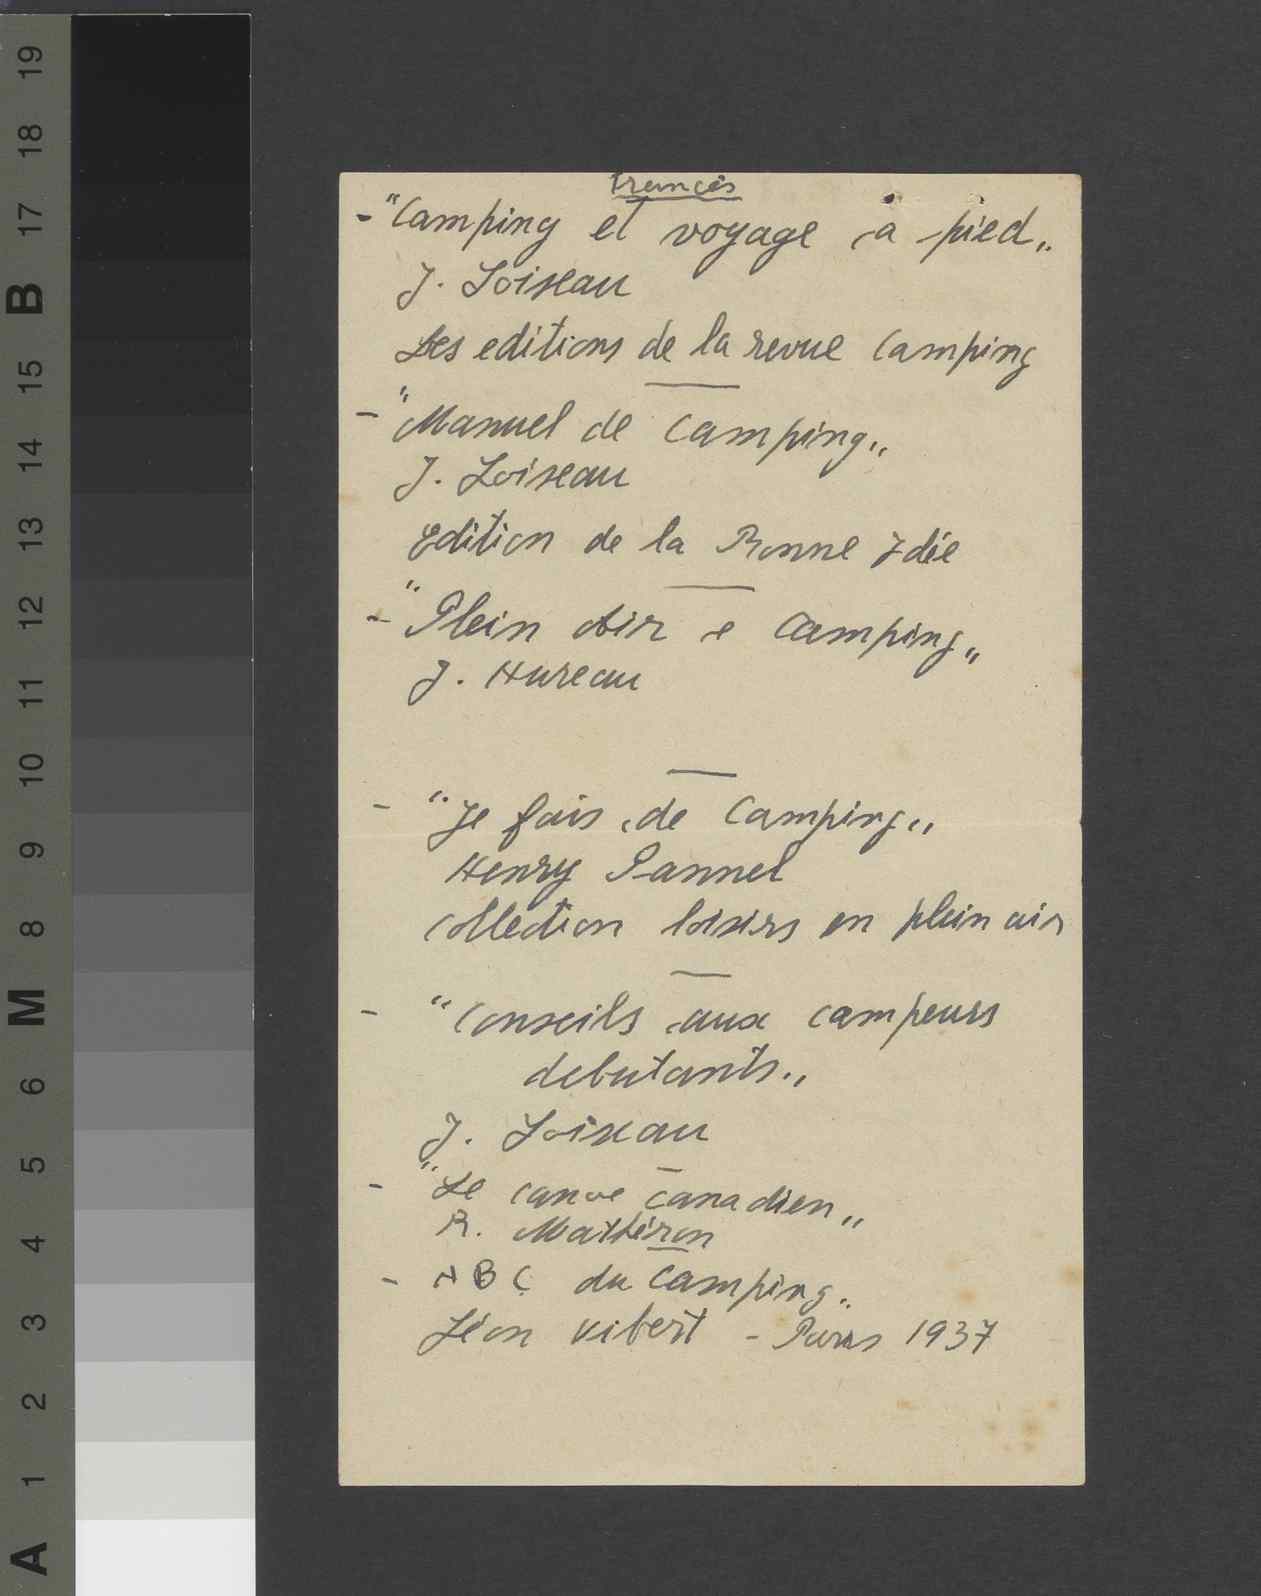 Francês
- "Camping et voyage à pied„
J. Loiseau
Les editions de la revue Camping
- "Manuel de Camping„
J. Loiseau
Edition de la Bonne Idée
- "Plein Air e Camping„
J. Hureau
- "Je fais de Camping„
Henry Pannel
Collection loisirs en plein air
- "Conseils aux campeurs
debutants„
J. Loiseau
- "Le canoe canadien„
R.
- ABC du Camping„
Léon Vibert - Paris 1937
19
18
17
B
15
14
13
12
11
10
9
8
M
6
5
4
3
2
1
A